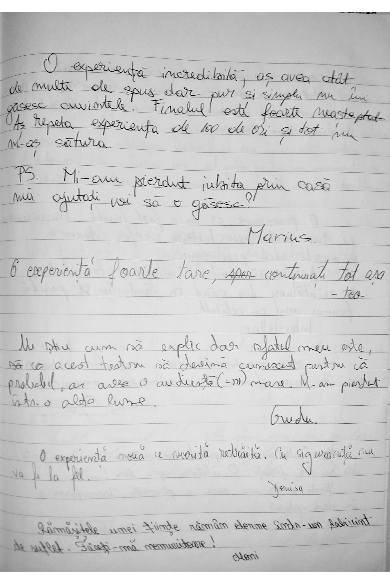 O experiență incredibilă, aș avea atât
de multe de spus dar pur și simplu nu îmi
găsesc cuvintele. Finalul este foarte neașteptat
Aș repeta experiența de 100 de ori și tot nu
m-aș sătura.
PS. Mi-am pierdut iubita prin casă
mă ajutați voi să o găsesc?
Marius
O experiență foarte tare, continuați tot așa
- Teo
Nu știu cum să explic dar sfatul meu este,
ca acest teatru să devină cunoscut pentru că
probabil, ar avea o audiență mare. M-am pierdut
într-o altă lume.
O experiență nouă ce merită retrăită. Cu siguranță nu
va fi la fel.
Denisa
Rămășițele unei ființe rămân eterne într-un labirint
de suflet. Faceți-mă nemuritoare!